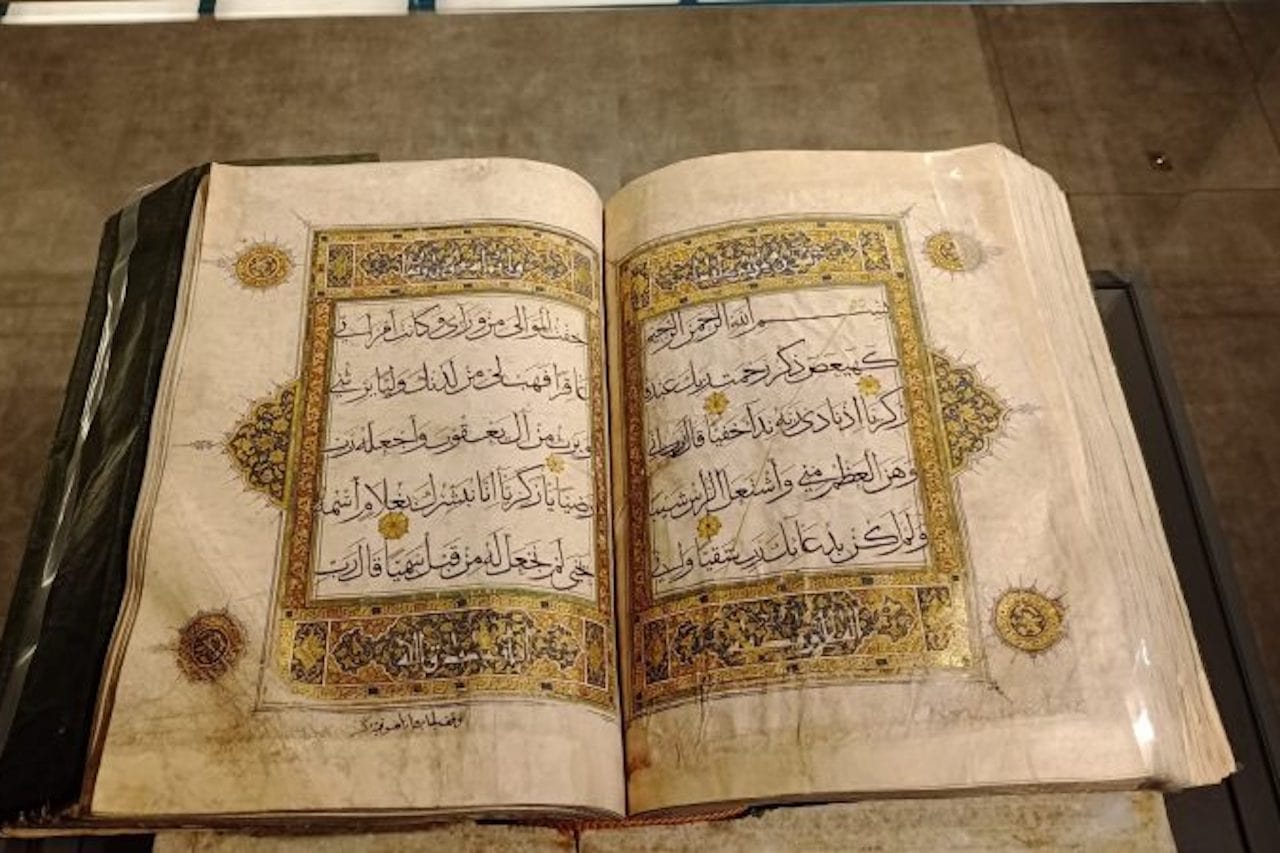 بسم الله الرحمن الرحيم
كهيعص ذكر رحمت ربك عبده
زكريا اذ نادى ربه ندآ خفيا قال رب اني
وهن العظم مني وأشتعل الراس شيبا
ولم اكن بدعائك رب شقيا واني
خفت الموالي من ورآي وكانت أمراتي
عاقرا فهب لي من لدنك وليا يرثني
ويرث من آل يعقوب وأجعله رب
رضيا يا زكريا انا نبشرك بغلام أسمه
يحيى لم نجعل له من قبل سميا قال رب